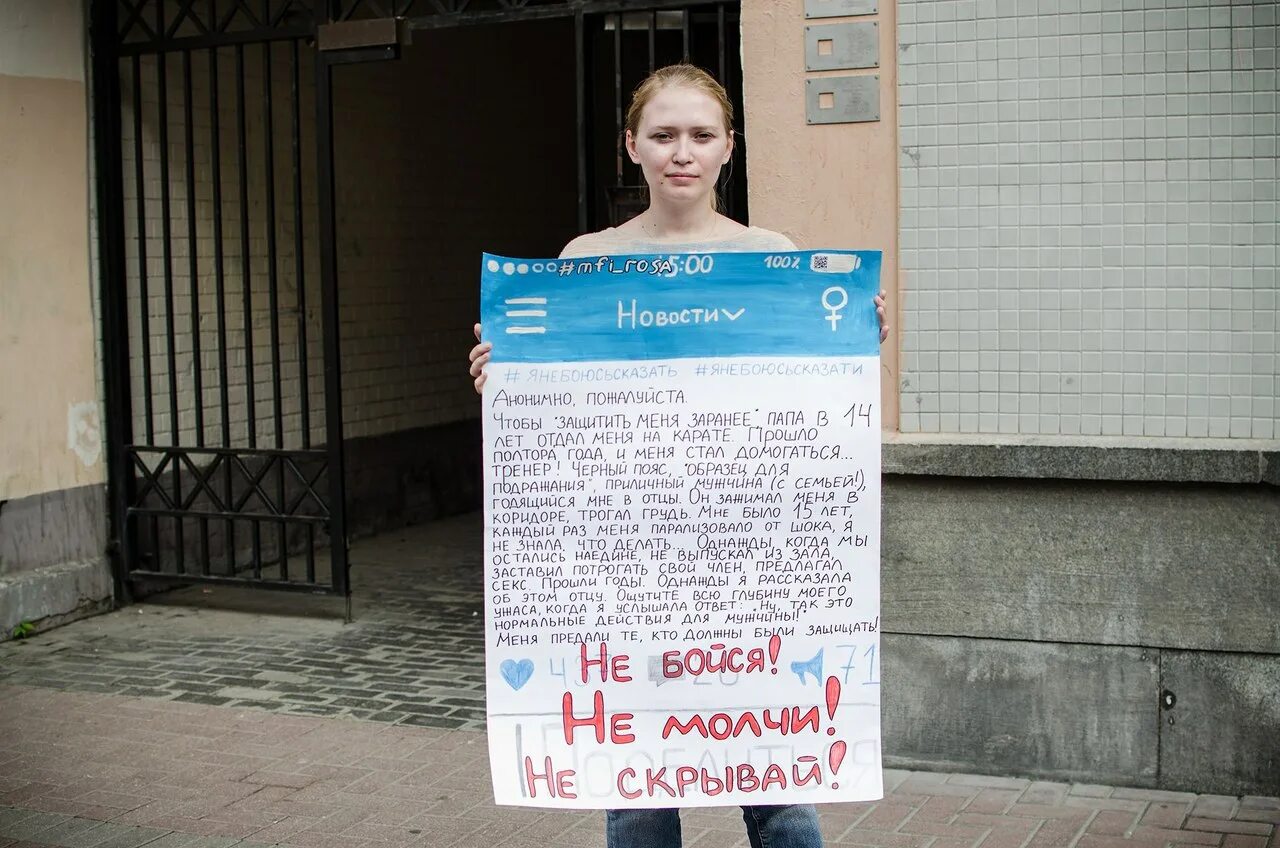 #mfi_rosa 5:00 100%
Новости
#ЯНЕБОЮСЬСКАЗАТЬ #ЯНЕБОЮСЬСКАЗАТИ
Анонимно, пожалуйста.
Чтобы "защитить меня заранее", папа в 14
лет отдал меня на карате. Прошло
полтора года, и меня стал домогаться...
тренер! Черный пояс, "образец для
подражания", приличный мужчина (с семьей!),
годящийся мне в отцы. Он зажимал меня в
коридоре, трогал грудь. Мне было 15 лет,
каждый раз меня парализовало от шока, я
не знала, что делать... Однажды, когда мы
остались наедине, не выпускал из зала,
заставил потрогать свой член, предлагал
секс. Прошли годы. Однажды я рассказала
об этом отцу. Ощутите всю глубину моего
ужаса, когда я услышала ответ: "Ну, так это
нормальные действия для мужчины!"
Меня предали те, кто должны были защищать!
Не бойся! 71
Не молчи!
Не скрывай!